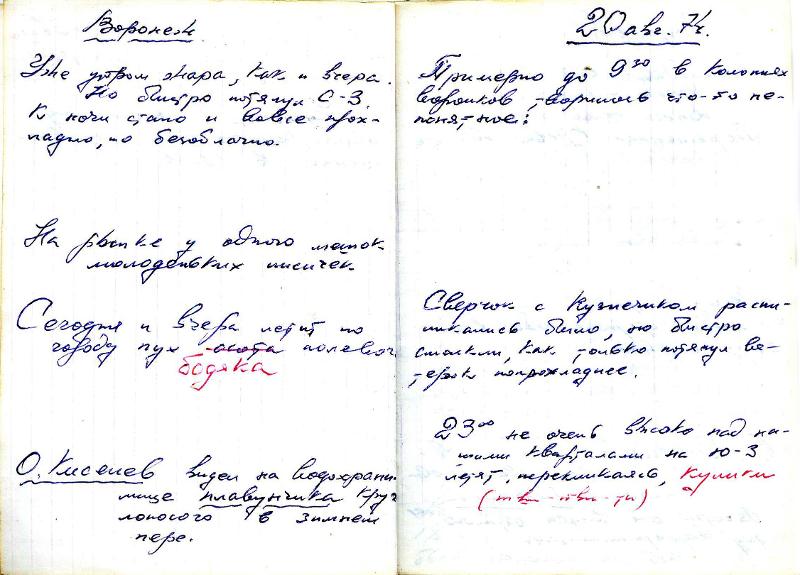 Воронеж.
Уже утром жара, как и вчера.
Но быстро потянул С-З.
К ночи стало и вовсе прох-
ладно, но безоблачно.
На рынке у одного мешок
молоденьких лисичек.
Сегодня и вчера летит по
городу пух осота полевог
бодяка
О. Киселев видел на водохрани
лище плавунчика круг
лоносого в зимнем
пере.
20 авг. 74.
Примерно до 9 30 в колониях
воронков творилось что-то не-
понятное:
Сверчок с Кузнечиком распи-
ликались было, но быстро
смолкли, как только потянул ве-
терок попрохладнее.
23 00 не очень высоко над на-
шими кварталами на Ю-З
летят, перекликаясь, кулики
(тви-тви-ти)